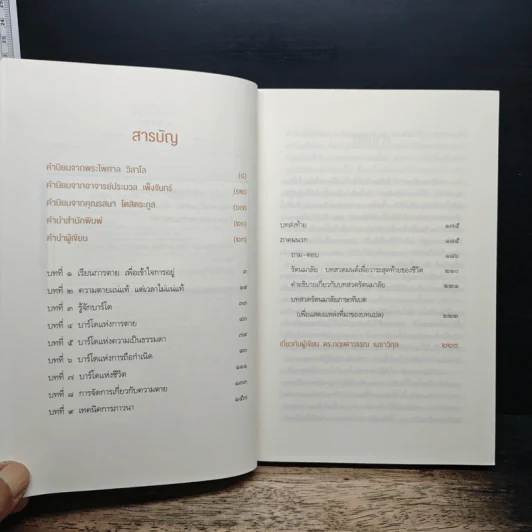 สารบัญ
คำนิยมจากพระไพศาล วิสาโล
คำนิยมจากอาจารย์ประมวล เพ็งจันทร์
คำนิยมจากคุณรสนา โตสิตระกูล
คำนำสำนักพิมพ์
คำนำผู้เขียน
บทที่ ๑ เรียนการตาย เพื่อเข้าใจการอยู่ ๑
บทที่ ๒ ความตายแน่แท้ แต่เวลาไม่แน่แท้
บทที่ ๓ รู้จักบาร์โด
บทที่ ๔ บาร์โดแห่งการตาย
บทที่ ๕ บาร์โดแห่งความเป็นธรรมดา
บทที่ ๖ บาร์โดแห่งการถือกำเนิด
บทที่ ๗ บาร์โดแห่งชีวิต ๑๑๑
บทที่ ๘ การจัดการเกี่ยวกับความตาย ๑๓๓
บทที่ ๙ เทคนิคการภาวนา ๑๕๗
บทส่งท้าย ๑๗๕
ภาคผนวก
ถาม-ตอบ
รัตนมาลัย : บทสวดมนต์เพื่อวาระสุดท้ายของชีวิต ๒๑๐
คำอธิบายเกี่ยวกับบทสวดรัตนมาลัย ๒๒๑
บทสวดรัตนมาลัยภาษาทิเบต
(เพื่อแสดงแหล่งที่มาของบทแปล) ๒๒๒
เกี่ยวกับผู้เขียน ดร.กฤษดาวรรณ เมธาวิกุล